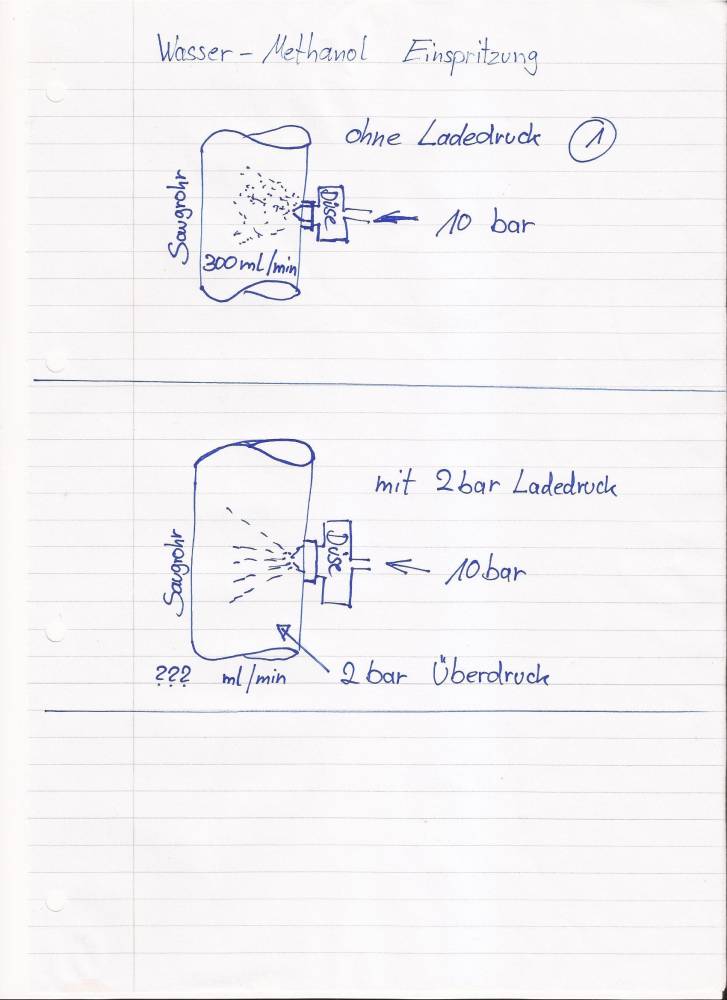 Wasser - Methanol Einspritzung
ohne Ladedruck 1
Saugrohr
Düse
10 bar
300 ml/min
mit 2 bar Ladedruck
Saugrohr
Düse
10 bar
??? ml/min
2 bar Überdruck